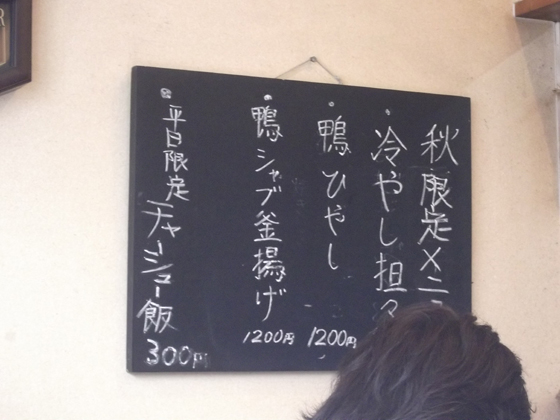 秋限定メニ
・冷やし担々
・鴨ひやし 1200円
・鴨シャブ釜揚げ 1200円
・平日限定チャーシュー飯 300円